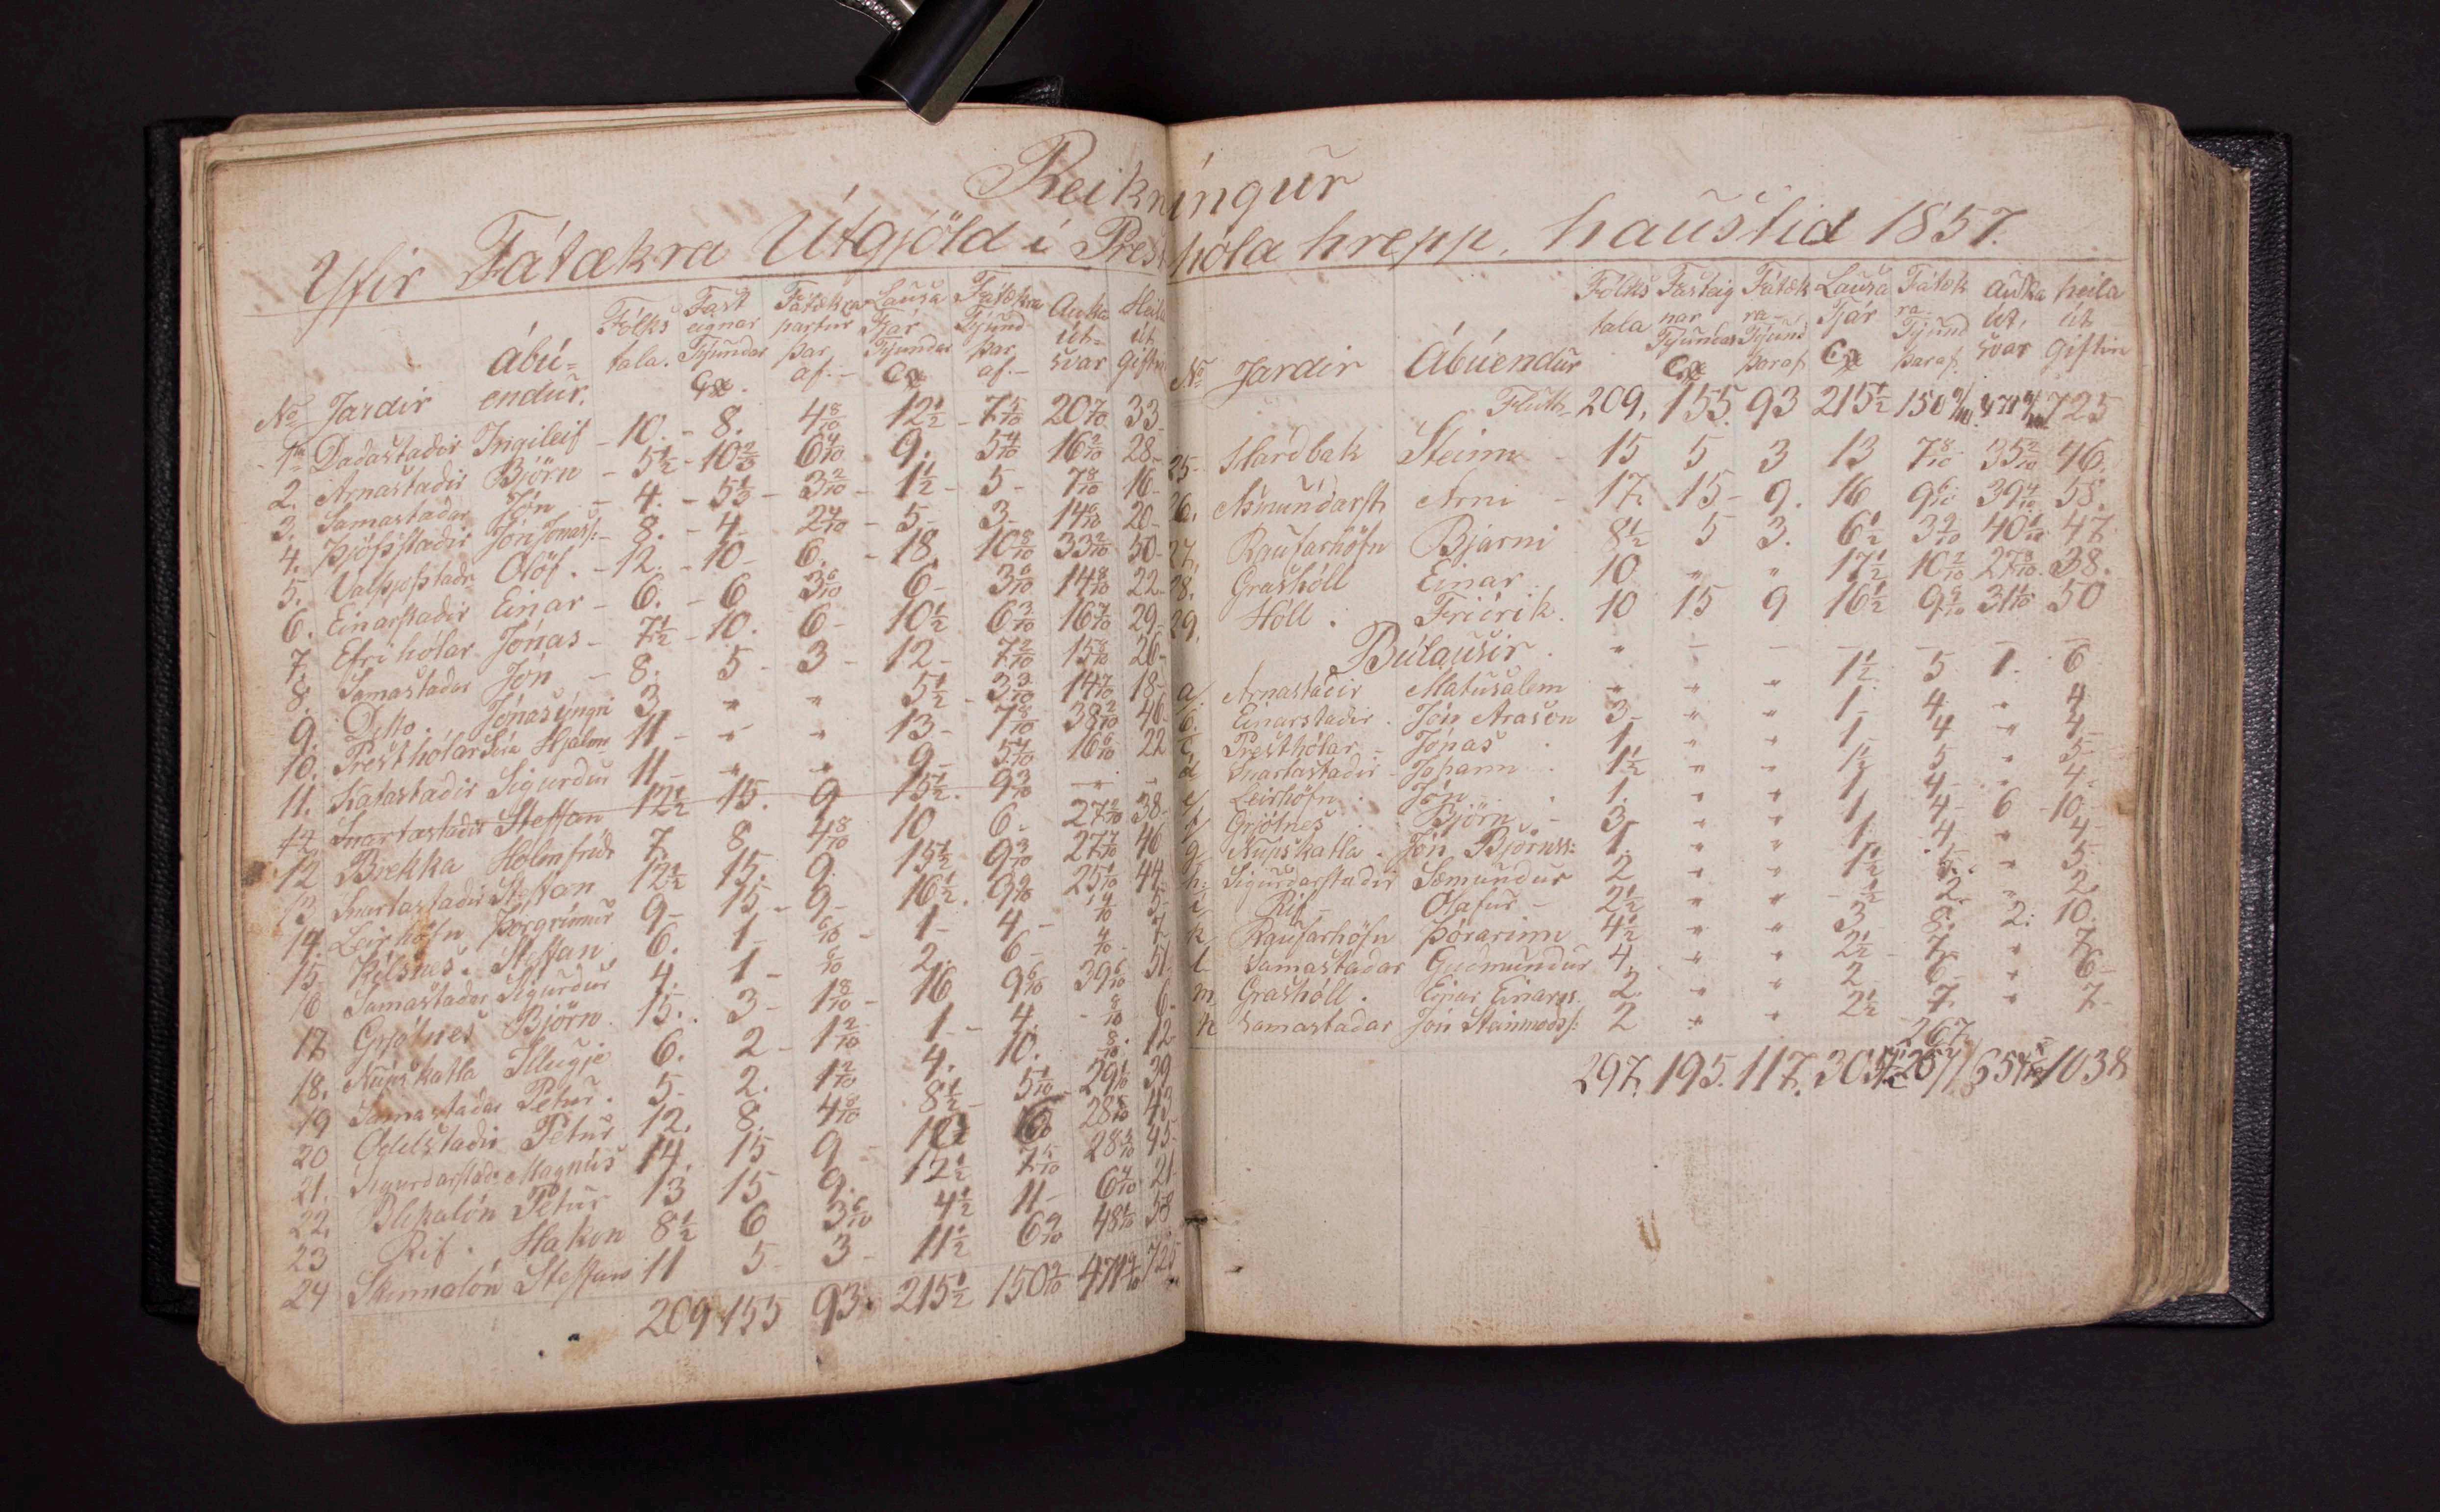 Reikníngur
Yfir Fátækra Útgjöld í Presthóla hrepp, haustid 1857.
No Jardir ábú=endur. Fólks tala. Fasteignar Týundar Cx. Fátækra partur þar af.- Lausa Fjár Týundar Cx Fátækra Týund þar af.- Auka út=svar Heila út giftin
1. Dadastadir Ingileif - 10. - 8. 4 8/10 12 1/2 - 7 5/10 20 7/10 33
2. Arnastadir Björn - 5 1/2 - 10 2/3 6 4/10 9. 5 4/10 16 2/10 28-
3. Samastadar Jón - 4. - 5 1/3 - 3 2/10 - 1 1/2 - 5 - 7 8/10 16-
4. Þjófsstadir Jón Jónass: - 8. - 4 - 2 4/10 - 5- 3- 14 6/10 20-
5. Valþjofstadr Olöf. - 12. - 10 - 6. - 18. 10 8/10 33 2/10 50-
6. Einarstadir Einar - 6. - 6 3 6/10 6- 3 6/10 14 8/10 22-
7. Efri hólar Jónas - 7 1/2 - 10. 6- 10 1/2 6 3/10 16 7/10 29-
8. Samastadar Jón - 8. 5- 3- 12- 7 2/10 15 8/10 26-
9. Ditto. Jónas ýngri 3. " " 5 1/2 - 3 3/10 14 7/10 18-
10. Presthólar Séra Hjálmr 11- " " 13- 7 8/10 38 2/10 46-
11. Katastadir Sigurdur 11- " " 9- 5 4/10 16 6/10 22
12 Snartastadir Steffan 12 1/2 15. 9 15 1/2. 9 3/10 - -
12 Brekka Holmfridr 7 8 4 8/10 10 6- 27 2/10 38-
13 Snartastadir Steffan 12 1/2 15. 9. 15 1/2 9 3/10 27 7/10 46
14. Leirhöfn Þorgrímur 9- 15- 9- 16 1/2. 9 9/10 25 1/10 44
15 Kílsnes. Steffan 6. 1- 6/10 - 1- 4- 4/10 5-
16 Samastadar Sigurdur 4. 1- 6/10 2. 6- 4/10 - 7-
17 Grjótnes Björn 15. 3- 1 8/10 - 16 9 6/10 39 6/10 51.
18. Núpskatla Illugje 6. 2- 1 2/10 1- 4. - 8/10 6-
19 Samastadar Petur. 5- 2. 1 2/10 4. 10. 8/10. 12
20 Oddstadir Petur 12. 8. 4 8/10 8 1/2 - 5 1/10 29 1/10 39
21. Sigurdarstadr Magnús 14. 15 9- 28 43
22. Blikalón Petur 13 15 9. 12 1/2 7 5/10 28 5/10 45-
23 Rif. Hakon 8 1/2 6 3 6/10 4 1/2 11- 6 4/10 21
24 Skinnalón Steffan 11 5- 3- 11 1/2 6 9/10 48 1/10 58
209 155 93. 215 1/2 150 9/10 471 725
No Jardir Ábúendur Fólks tala Fasteignar Týundar Cx Fátækra- Týund þaraf Lausa Fjár Cx Fátækra- Týund þaraf. auka út, svar heila út giftin
Flutt- 209. 155. 93 215 1/2 150 9/10. 471 725
25- Hardbak Steinn - 15 5 3 13 7 8/10 35 2/10 46.
26. Asmundarst Arni - 17. 15- 9. 16 9 6/10 39 4/10 58.
27. Raufarhöfn Bjarni 8 1/2 5 3. 6 1/2 3 9/10 40 1/10 47
28. Grashóll Einar. 10 " " 17 1/2 10 2/10 27 8/10. 38.
29. Hóll. Fridrik. 10 15 9 16 1/2 9 9/10 31 1/10 50
Búlausir. " - - - - - -
a/ Arnastadir Matusalem " " " 1 1/2 5 1. 6
b. Einarstadir. Jón Arason 3- " " 1- 4. " 4
c. Presthólar - Jónas. 1. " " 1- 4 " 4-
d Snartastadir - Johann. 1 1/2 " " 1 1/2 5 " 5-
e/ Leirhöfn. Jón. 1. " " 1 4- " 4-
f/ Grjótnes. Björn - 3- " " 1 4- 6 - 10-
g. Núpskatla. Jón Björnss: 1. " " 1. 4 " 4-
h: Sigurdarstadir Sæmundur 2 " " 1 1/2 5. " 5.
i. Rif - Olafur - 2 1/2 " " - 1/2 2. " 2.
k Raufarhöfn Þórarinn 4 1/2 " " 3 8. 2. 10.
l Samastadar Gudmundur 4. " " 2 1/2 - 7- " 7-
m. Grashóll. Einar Einarss. 2. " " 2 6- " 6-
n Samastadar Jón Steinmods/: 2 " " 2 1/2 7. " 7-
267
297. 195. 117. 1038